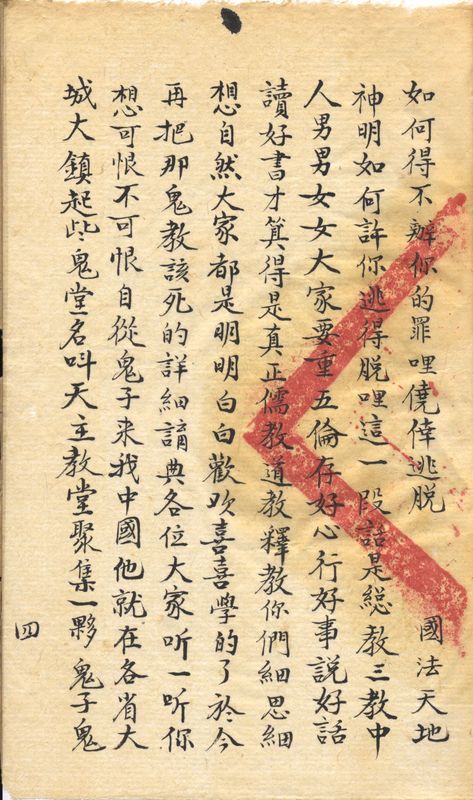 如何得不辦你的罪哩僥倖逃脫 國法天地
神明如何許你逃得脫哩這一段話是総教三教中
人男男女女大家要重五倫存好心行好事說好話
讀好書才算得是真正儒教道教釋教你們細思細
想自然大家都是明明白白歡欢喜喜學的了於今
再把那鬼教該死的詳細講與各位大家听一听你
想可恨不可恨自從鬼子来我中國他就在各省大
城大鎮起些鬼堂名叫天主教堂聚集一夥鬼子鬼
四